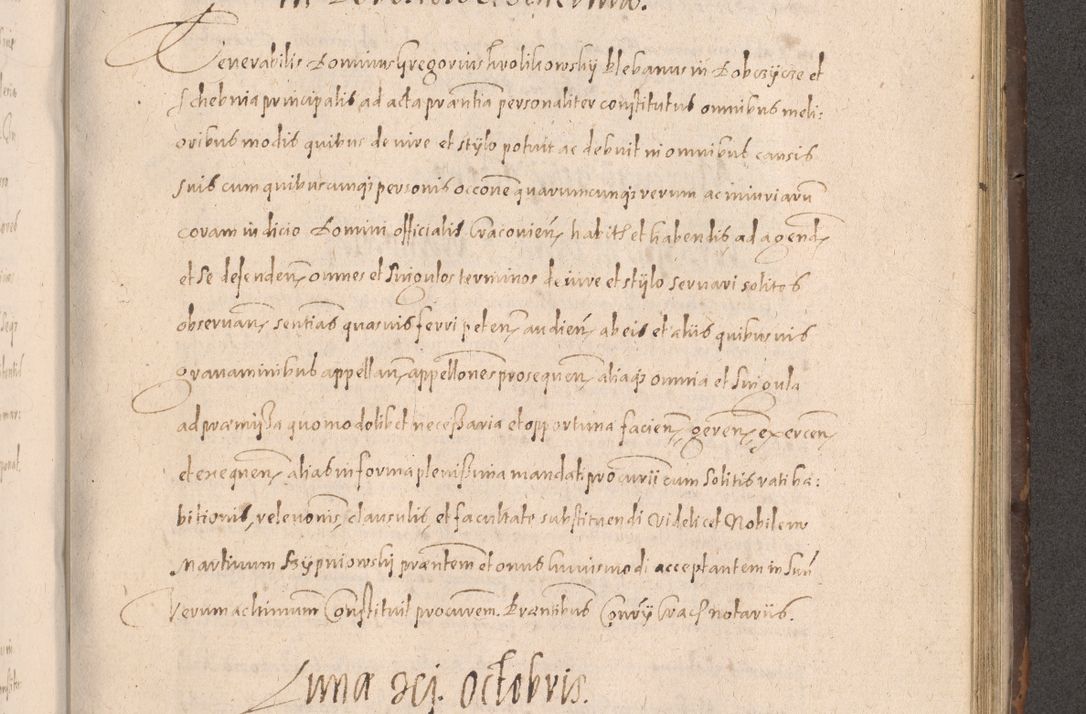 Venerabilis Dominus Gregorius Krolikowskÿ Plebanus in Dobczÿcze et
Schebnia principalis ad acta præntia personaliter constitutus omnibus meli:
oribus modis quibus de iure et stÿlo potuit ac debuit in omnibus causis
suis cum quibuscunqꝫ personis occone quarumcunqꝫ rerum ac iniuriarū
coram iudicio Domini officialis Cracovien habitis et habendis ad agend
et se defenden omnes et singulos terminos de iure et stÿlo servari solitos
observan sentias quasvis ferri peten audien ab eis et aliis quibusvis
gravaminibus appellan appellones prosequen aliaqꝫ omnia et singula
ad præmißa quomodolibet neceßaria et opportuna facien, geren, exercen
et exequen alias in forma plenißima mandati procurii cum solitis rati ha:
bitionis, relevonis, clausulis, et facultate substituendi videlicet Nobilem
Martinum Szÿpniowskÿ præntem et onus huiusmodi acceptantem in suū
verum ac ltimum Constituit procurem. Præntibus Conrÿ Crac notariis.
Luna xcj. octobris.